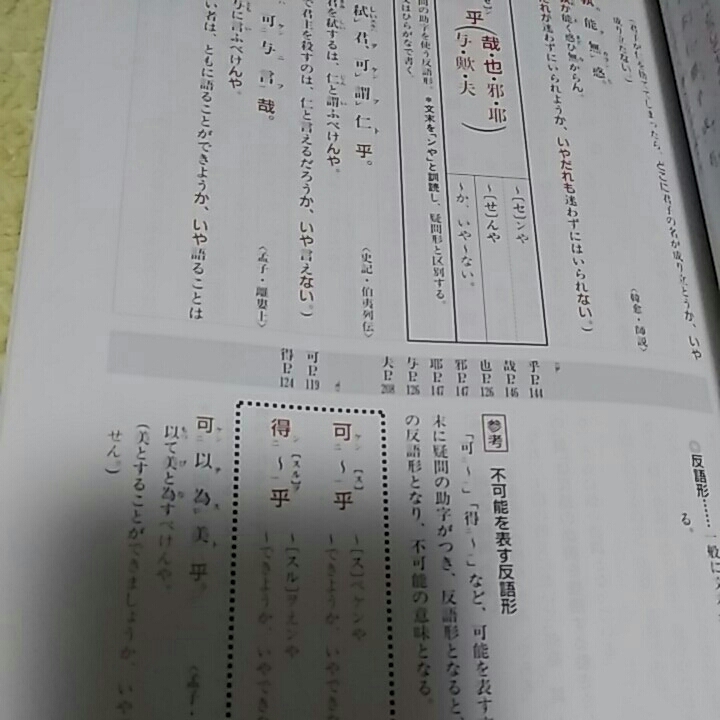 (君子が仁を捨ててしまったら、どこに君子の名が成り立とうか、いや
成り立たない。)
孰能無惑
だれか能く惑ひ無からん。
だれが迷わずにいられようか、いやだれも迷わずにはいられない。)
〈韓愈・師説〉
乎(哉・也・邪・耶
与・歟・夫)
〜〔セ〕ンや
〜〔せ〕んや
〜か、いや〜ない。
問の助字を使う反語形。
*文末を「ンや」と訓読し、疑問形と区別する。
ではひらがなで書く。
弑君、可謂仁乎。
君を弑するは、仁と謂ふべけんや。
で君を殺すのは、仁と言えるだろうか、いや言えない。)
〈史記・伯夷列伝〉
可与言哉。
与に言ふべけんや。
い者は、ともに語ることができようか、いや語ることは
〈孟子・離婁上〉
乎P.144
哉P.146
也P.126
邪P.147
耶P.147
与P.126
夫P.208
可P.119
得P.124
反語形……一般に
る。
参考 不可能を表す反語形
「可〜」「得〜」など、可能を表す
末に疑問の助字がつき、反語形となると、
の反語形となり、不可能の意味となる。
可〜乎
〜〔ス〕ベケンや
〜できようか、いやでき
得〜乎
〜〔スル〕ヲえンや
〜できようか、いやできな
可以為美乎。
以て美と為すべけんや。
(美とすることができましようか、いや
せん。)
〈孟子・